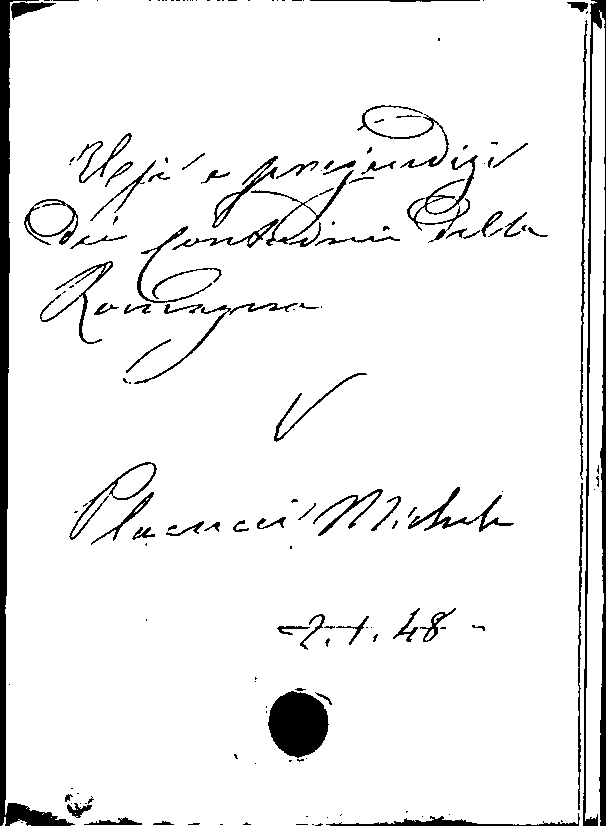 Usi e pregiudizi
dei Contadini della
Romagna
V
Placucci Michele
7.1.48 -